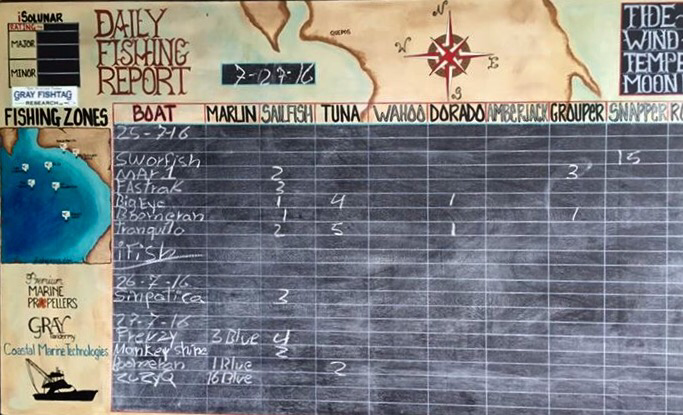 iSOLUNAR
RATING
MAJOR
MINOR
GRAY FISHTAG
RESEARCH
DAILY
FISHING
REPORT
7-27-16
QUEPOS
N
W E
S
TIDE
WIND
TEMPE
MOON
FISHING ZONES
BOAT MARLIN SAILFISH TUNA WAHOO DORADO AMBERJACK GROUPER SNAPPER RO
25-7-16
Sworfish 15
MAr 1 2 3
FAstrak 3
BigEye 1 4 1
Boomeran 1 1
Tranquilo 2 5 1
iFish
26-7-16
Simpatica 3
27-7-16
Frenzy 3 Blue 4
Monkey shine 2
boomeran 1 Blue 2
ZuZyQ 16 Blue
Premium
MARINE
PROPELLERS
GRAY
Taxidermy
Coastal Marine Technologies